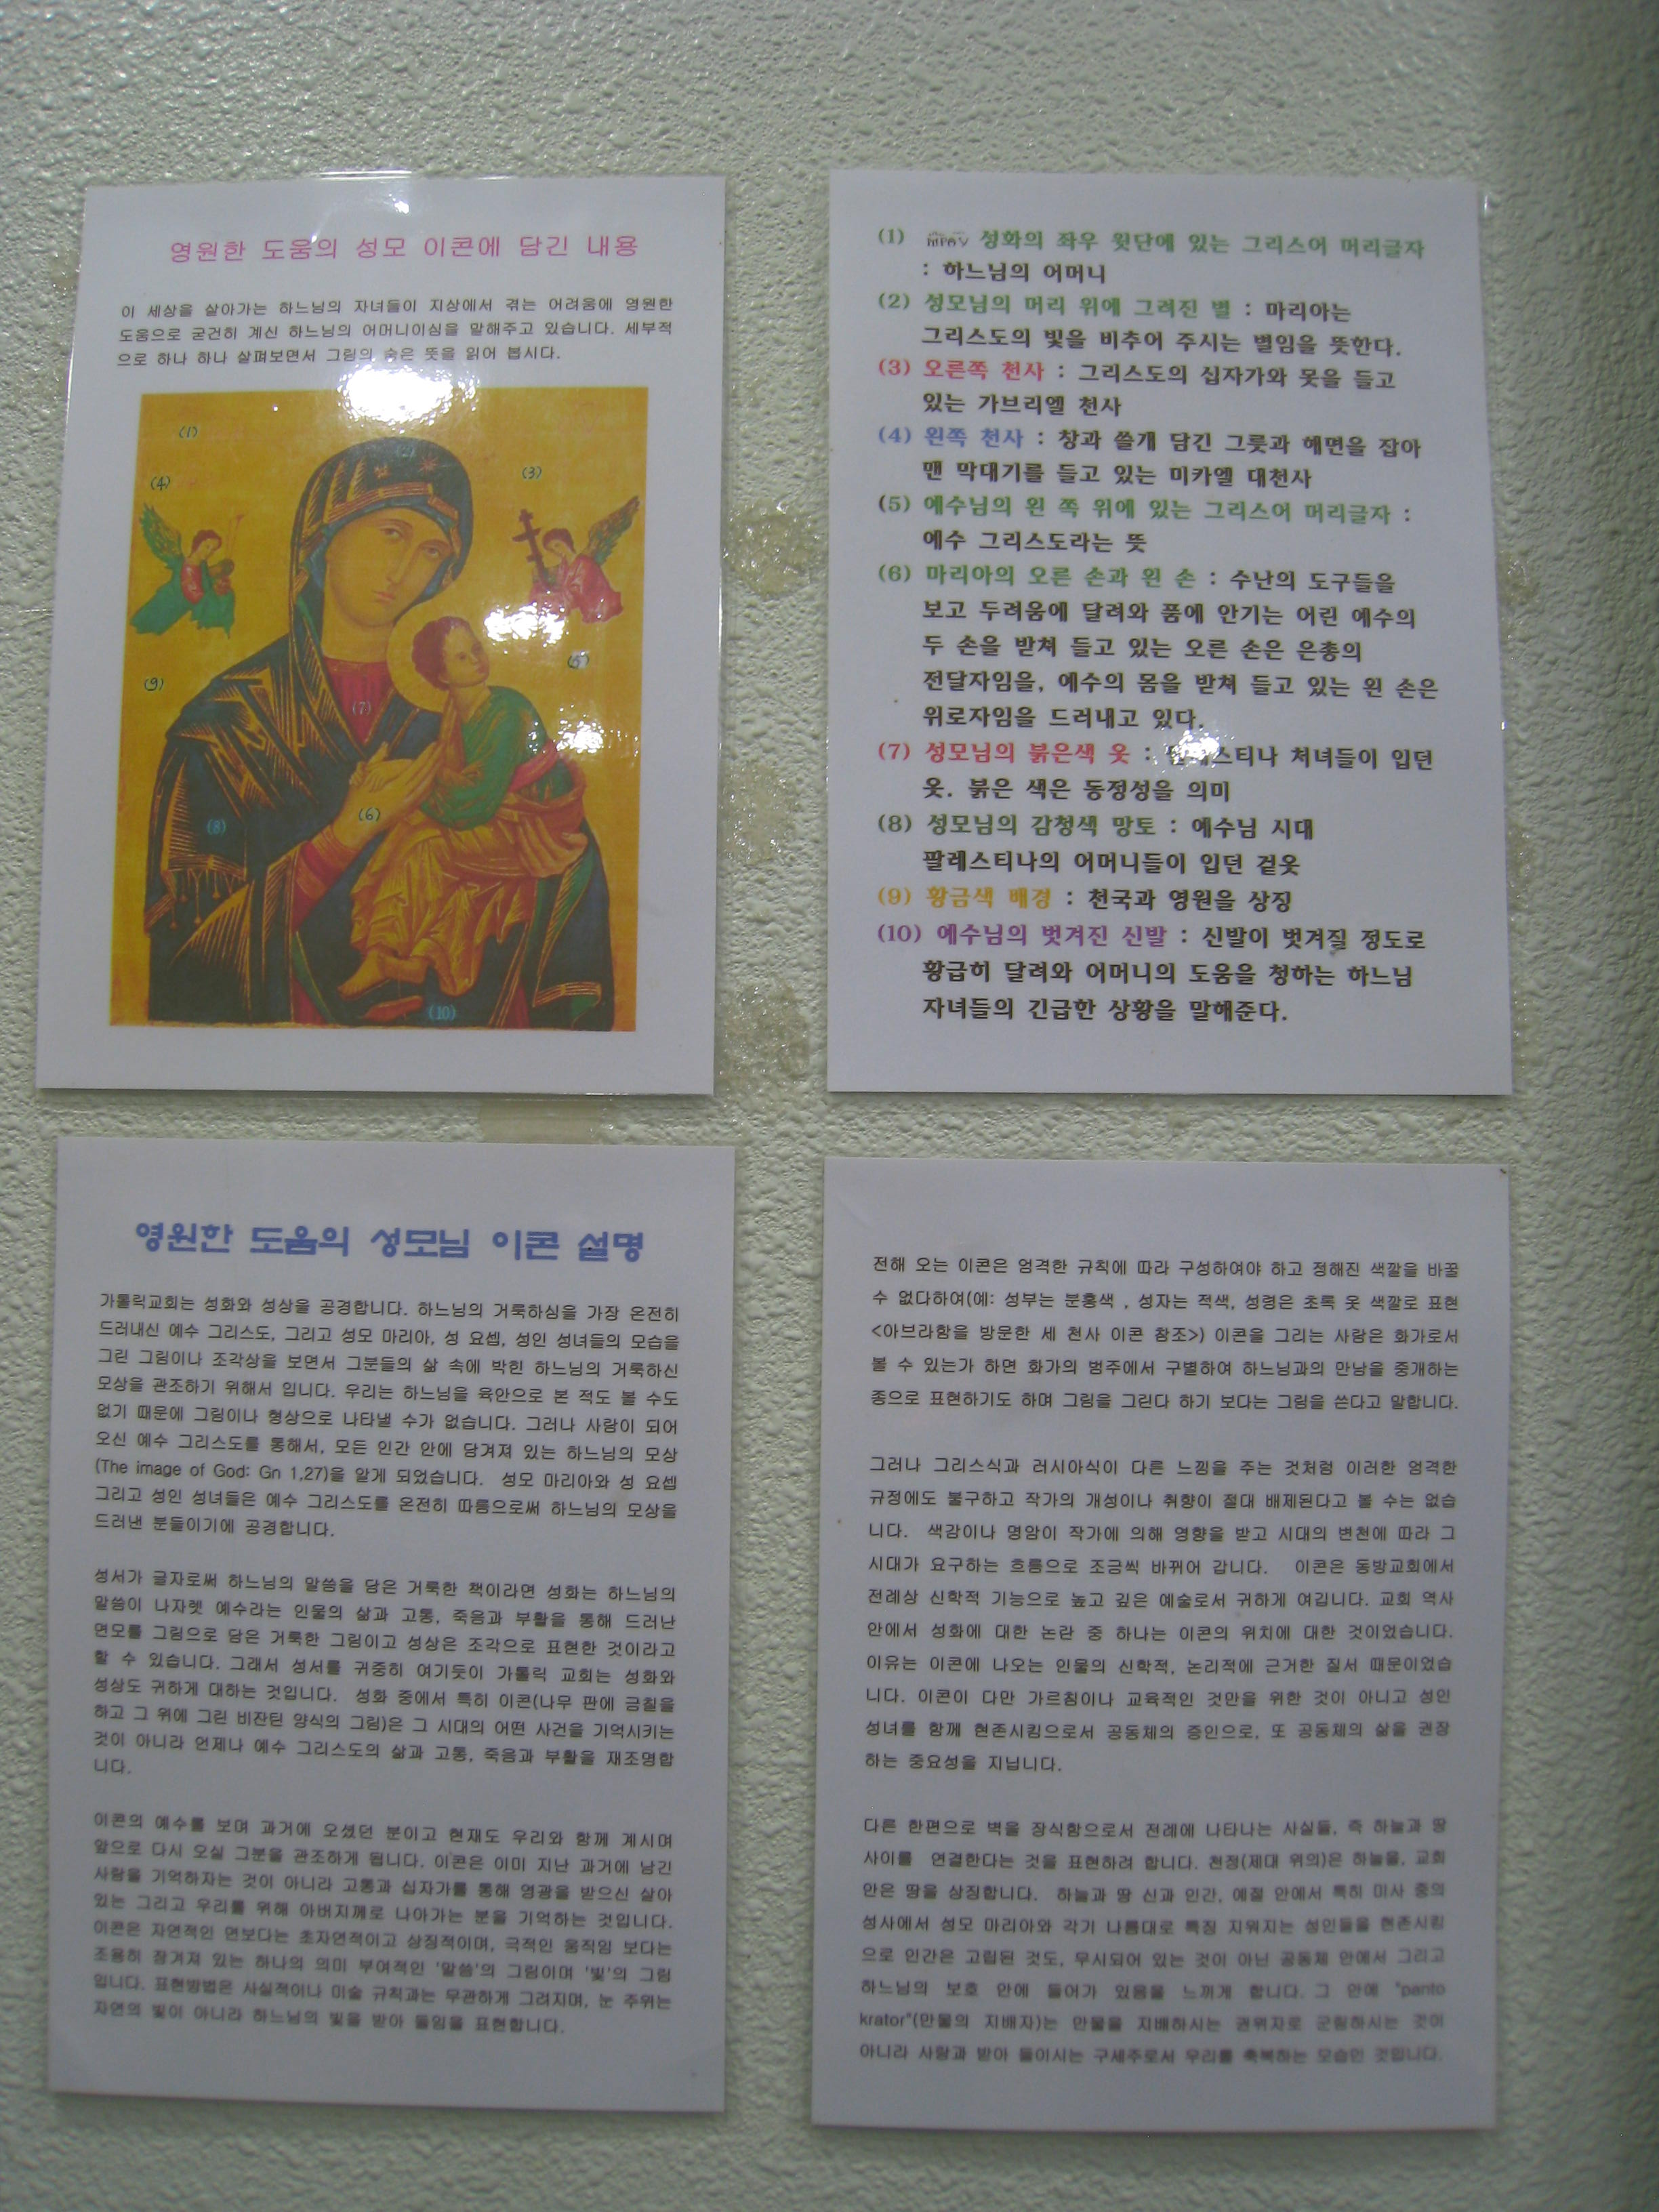 영원한 도움의 성모 이콘에 담긴 내용
이 세상을 살아가는 하느님의 자녀들이 지상에서 겪는 어려움에 영원한
도움으로 굳건히 계신 하느님의 어머니이심을 말해주고 있습니다. 세부적
으로 하나 하나 살펴보면서 그림의 숨은 뜻을 읽어 봅시다.
(1)
(2)
(3)
(4)
(5)
(9)
(7)
(6)
(8)
(10)
(1) 성화의 좌우 윗단에 있는 그리스어 머리글자
: 하느님의 어머니
(2) 성모님의 머리 위에 그려진 별 : 마리아는
그리스도의 빛을 비추어 주시는 별임을 뜻한다.
(3) 오른쪽 천사 : 그리스도의 십자가와 못을 들고
있는 가브리엘 천사
(4) 왼쪽 천사 : 창과 쓸개 담긴 그릇과 해면을 잡아
맨 막대기를 들고 있는 미카엘 대천사
(5) 예수님의 왼 쪽 위에 있는 그리스어 머리글자 :
예수 그리스도라는 뜻
(6) 마리아의 오른 손과 왼 손 : 수난의 도구들을
보고 두려움에 달려와 품에 안기는 어린 예수의
두 손을 받쳐 들고 있는 오른 손은 은총의
전달자임을, 예수의 몸을 받쳐 들고 있는 왼 손은
위로자임을 드러내고 있다.
(7) 성모님의 붉은색 옷 : 팔레스티나 처녀들이 입던
옷. 붉은 색은 동정성을 의미
(8) 성모님의 감청색 망토 : 예수님 시대
팔레스티나의 어머니들이 입던 겉옷
(9) 황금색 배경 : 천국과 영원을 상징
(10) 예수님의 벗겨진 신발 : 신발이 벗겨질 정도로
황급히 달려와 어머니의 도움을 청하는 하느님
자녀들의 긴급한 상황을 말해준다.
영원한 도움의 성모님 이콘 설명
가톨릭교회는 성화와 성상을 공경합니다. 하느님의 거룩하심을 가장 온전히
드러내신 예수 그리스도, 그리고 성모 마리아, 성 요셉, 성인 성녀들의 모습을
그린 그림이나 조각상을 보면서 그분들의 삶 속에 박힌 하느님의 거룩하신
모상을 관조하기 위해서 입니다. 우리는 하느님을 육안으로 본 적도 볼 수도
없기 때문에 그림이나 형상으로 나타낼 수가 없습니다. 그러나 사람이 되어
오신 예수 그리스도를 통해서, 모든 인간 안에 담겨져 있는 하느님의 모상
(The image of God: Gn 1,27)을 알게 되었습니다. 성모 마리아와 성 요셉
그리고 성인 성녀들은 예수 그리스도를 온전히 따름으로써 하느님의 모상을
드러낸 분들이기에 공경합니다.
성서가 글자로써 하느님의 말씀을 담은 거룩한 책이라면 성화는 하느님의
말씀이 나자렛 예수라는 인물의 삶과 고통, 죽음과 부활을 통해 드러난
면모를 그림으로 담은 거룩한 그림이고 성상은 조각으로 표현한 것이라고
할 수 있습니다. 그래서 성서를 귀중히 여기듯이 가톨릭 교회는 성화와
성상도 귀하게 대하는 것입니다. 성화 중에서 특히 이콘(나무 판에 금칠을
하고 그 위에 그린 비잔틴 양식의 그림)은 그 시대의 어떤 사건을 기억시키는
것이 아니라 언제나 예수 그리스도의 삶과 고통, 죽음과 부활을 재조명합
니다.
이콘의 예수를 보며 과거에 오셨던 분이고 현재도 우리와 함께 계시며
앞으로 다시 오실 그분을 관조하게 됩니다. 이콘은 이미 지난 과거에 남긴
사람을 기억하자는 것이 아니라 고통과 십자가를 통해 영광을 받으신 살아
있는 그리고 우리를 위해 아버지께로 나아가는 분을 기억하는 것입니다.
이콘은 자연적인 면보다는 초자연적이고 상징적이며, 극적인 움직임 보다는
조용히 잠겨져 있는 하나의 의미 부여적인 '말씀'의 그림이며 '빛'의 그림
입니다. 표현방법은 사실적이나 미술 규칙과는 무관하게 그려지며, 눈 주위는
자연의 빛이 아니라 하느님의 빛을 받아 들임을 표현합니다.
전해 오는 이콘은 엄격한 규칙에 따라 구성하여야 하고 정해진 색깔을 바꿀
수 없다하여(예: 성부는 분홍색 , 성자는 적색, 성령은 초록 옷 색깔로 표현
<아브라함을 방문한 세 천사 이콘 참조>) 이콘을 그리는 사람은 화가로서
볼 수 있는가 하면 화가의 범주에서 구별하여 하느님과의 만남을 중개하는
종으로 표현하기도 하며 그림을 그린다 하기 보다는 그림을 쓴다고 말합니다.
그러나 그리스식과 러시아식이 다른 느낌을 주는 것처럼 이러한 엄격한
규정에도 불구하고 작가의 개성이나 취향이 절대 배제된다고 볼 수는 없습
니다. 색감이나 명암이 작가에 의해 영향을 받고 시대의 변천에 따라 그
시대가 요구하는 흐름으로 조금씩 바뀌어 갑니다. 이콘은 동방교회에서
전례상 신학적 기능으로 높고 깊은 예술로서 귀하게 여깁니다. 교회 역사
안에서 성화에 대한 논란 중 하나는 이콘의 위치에 대한 것이었습니다.
이유는 이콘에 나오는 인물의 신학적, 논리적에 근거한 질서 때문이었습
니다. 이콘이 다만 가르침이나 교육적인 것만을 위한 것이 아니고 성인
성녀를 함께 현존시킴으로서 공동체의 증인으로, 또 공동체의 삶을 권장
하는 중요성을 지닙니다.
다른 한편으로 벽을 장식함으로서 전례에 나타나는 사실들, 즉 하늘과 땅
사이를 연결한다는 것을 표현하려 합니다. 천정(제대 위의)은 하늘을, 교회
안은 땅을 상징합니다. 하늘과 땅 신과 인간, 예절 안에서 특히 미사 중의
성사에서 성모 마리아와 각기 나름대로 특징 지워지는 성인들을 현존시킴
으로 인간은 고립된 것도, 무시되어 있는 것이 아닌 공동체 안에서 그리고
하느님의 보호 안에 들어가 있음을 느끼게 합니다. 그 안에 "panto
krator"(만물의 지배자)는 만물을 지배하시는 권위자로 군림하시는 것이
아니라 사랑과 받아 들이시는 구세주로서 우리를 축복하는 모습인 것입니다.